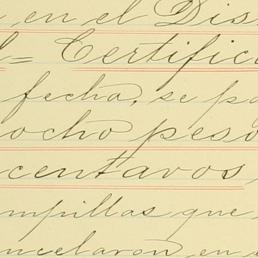 en el Dis
l= Certific
fecha, se pa
ocho peso
centavos
mpillas que
ncelaron, en